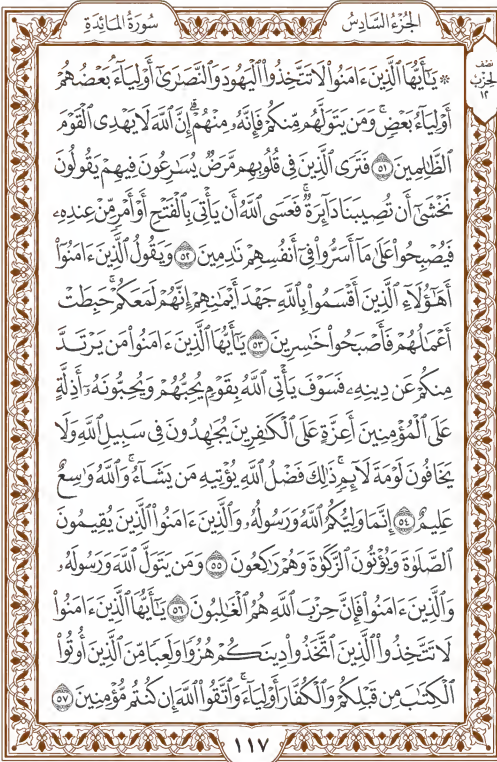 سُورَةُ المَائِدَةِ
الجُزْءُ السَّادِسُ
نصف
الحزب
١٢
۞ يَٰٓأَيُّهَا ٱلَّذِينَ ءَامَنُواْ لَا تَتَّخِذُواْ ٱلۡيَهُودَ وَٱلنَّصَٰرَىٰٓ أَوۡلِيَآءَۘ بَعۡضُهُمۡ
أَوۡلِيَآءُ بَعۡضٖۚ وَمَن يَتَوَلَّهُم مِّنكُمۡ فَإِنَّهُۥ مِنۡهُمۡۗ إِنَّ ٱللَّهَ لَا يَهۡدِي ٱلۡقَوۡمَ
ٱلظَّٰلِمِينَ ٥١ فَتَرَى ٱلَّذِينَ فِي قُلُوبِهِم مَّرَضٞ يُسَٰرِعُونَ فِيهِمۡ يَقُولُونَ
نَخۡشَىٰٓ أَن تُصِيبَنَا دَآئِرَةٞۚ فَعَسَى ٱللَّهُ أَن يَأۡتِيَ بِٱلۡفَتۡحِ أَوۡ أَمۡرٖ مِّنۡ عِندِهِۦ
فَيُصۡبِحُواْ عَلَىٰ مَآ أَسَرُّواْ فِيٓ أَنفُسِهِمۡ نَٰدِمِينَ ٥٢ وَيَقُولُ ٱلَّذِينَ ءَامَنُوٓاْ
أَهَٰٓؤُلَآءِ ٱلَّذِينَ أَقۡسَمُواْ بِٱللَّهِ جَهۡدَ أَيۡمَٰنِهِمۡ إِنَّهُمۡ لَمَعَكُمۡۚ حَبِطَتۡ
أَعۡمَٰلُهُمۡ فَأَصۡبَحُواْ خَٰسِرِينَ ٥٣ يَٰٓأَيُّهَا ٱلَّذِينَ ءَامَنُواْ مَن يَرۡتَدَّ
مِنكُمۡ عَن دِينِهِۦ فَسَوۡفَ يَأۡتِي ٱللَّهُ بِقَوۡمٖ يُحِبُّهُمۡ وَيُحِبُّونَهُۥٓ أَذِلَّةٍ
عَلَى ٱلۡمُؤۡمِنِينَ أَعِزَّةٍ عَلَى ٱلۡكَٰفِرِينَ يُجَٰهِدُونَ فِي سَبِيلِ ٱللَّهِ وَلَا
يَخَافُونَ لَوۡمَةَ لَآئِمٖۚ ذَٰلِكَ فَضۡلُ ٱللَّهِ يُؤۡتِيهِ مَن يَشَآءُۚ وَٱللَّهُ وَٰسِعٌ
عَلِيمٌ ٥٤ إِنَّمَا وَلِيُّكُمُ ٱللَّهُ وَرَسُولُهُۥ وَٱلَّذِينَ ءَامَنُواْ ٱلَّذِينَ يُقِيمُونَ
ٱلصَّلَوٰةَ وَيُؤۡتُونَ ٱلزَّكَوٰةَ وَهُمۡ رَٰكِعُونَ ٥٥ وَمَن يَتَوَلَّ ٱللَّهَ وَرَسُولَهُۥ
وَٱلَّذِينَ ءَامَنُواْ فَإِنَّ حِزۡبَ ٱللَّهِ هُمُ ٱلۡغَٰلِبُونَ ٥٦ يَٰٓأَيُّهَا ٱلَّذِينَ ءَامَنُواْ
لَا تَتَّخِذُواْ ٱلَّذِينَ ٱتَّخَذُواْ دِينَكُمۡ هُزُوٗا وَلَعِبٗا مِّنَ ٱلَّذِينَ أُوتُواْ
ٱلۡكِتَٰبَ مِن قَبۡلِكُمۡ وَٱلۡكُفَّارَ أَوۡلِيَآءَۚ وَٱتَّقُواْ ٱللَّهَ إِن كُنتُم مُّؤۡمِنِينَ ٥٧
١١٧